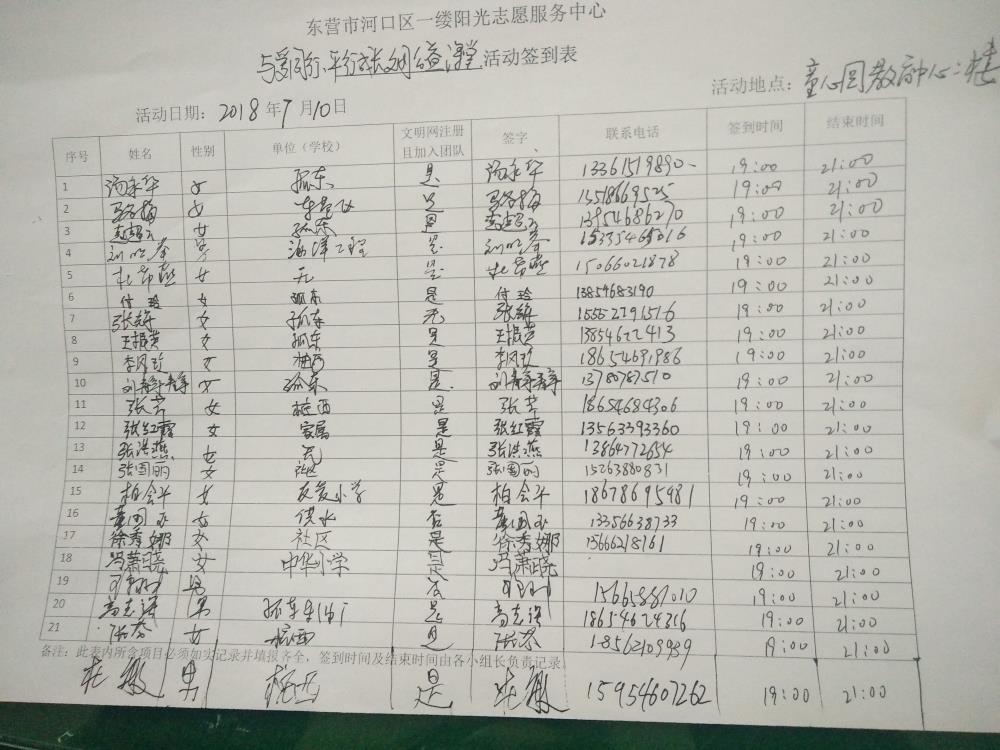 东营市河口区一缕阳光志愿服务中心
与爱同行、平行成长文明公益课堂活动签到表
活动日期：2018年7月10日 活动地点：童心圆教育中心二楼
序号 姓名 性别 单位（学校） 文明网注册且加入团队 签字 联系电话 签到时间 结束时间
1 汤永华 女 孤东 是 汤永华 13361519890 19:00 21:00
2 女 15518669525 19:00 21:00
3 女 孤东 13954686270 19:00 21:00
4 男 海洋工程 是 19:00 21:00
5 女 无 是 15066021878 19:00 21:00
6 付玲 女 孤东 是 付玲 13854683190 19:00 21:00
7 女 孤东 无 19:00 21:00
8 王振英 女 孤东 是 王振英 13854622413 19:00 21:00
9 李风玲 女 是 李风玲 18654691986 19:00 21:00
10 女 孤东 是 1378787510 19:00 21:00
11 张芳 女 桩西 是 张芳 18654684306 19:00 21:00
12 张红霞 女 家属 是 张红霞 13563393360 19:00 21:00
13 张洪燕 女 无 是 张洪燕 13864772654 19:00 21:00
14 张国丽 女 是 张国丽 15263880831 19:00 21:00
15 柏会平 女 友爱小学 柏会平 18678695981 19:00 21:00
16 女 供水 否 13356638733 19:00 21:00
17 徐秀娜 女 社区 是 徐秀娜 15666218161 19:00 21:00
18 冯萧晓 女 中华小学 是 冯萧晓 19:00 21:00
19 男 否 15665887010 19:00 21:00
20 高志强 男 是 高志强 18654624316 19:00 21:00
21 女 桩西 是 18562109939 19:00 21:00
备注：此表内所含项目必须如实记录并填报齐全，签到时间及结束时间由各小组长负责记录。
男 桩西 是 15954607262 19:00 21:00